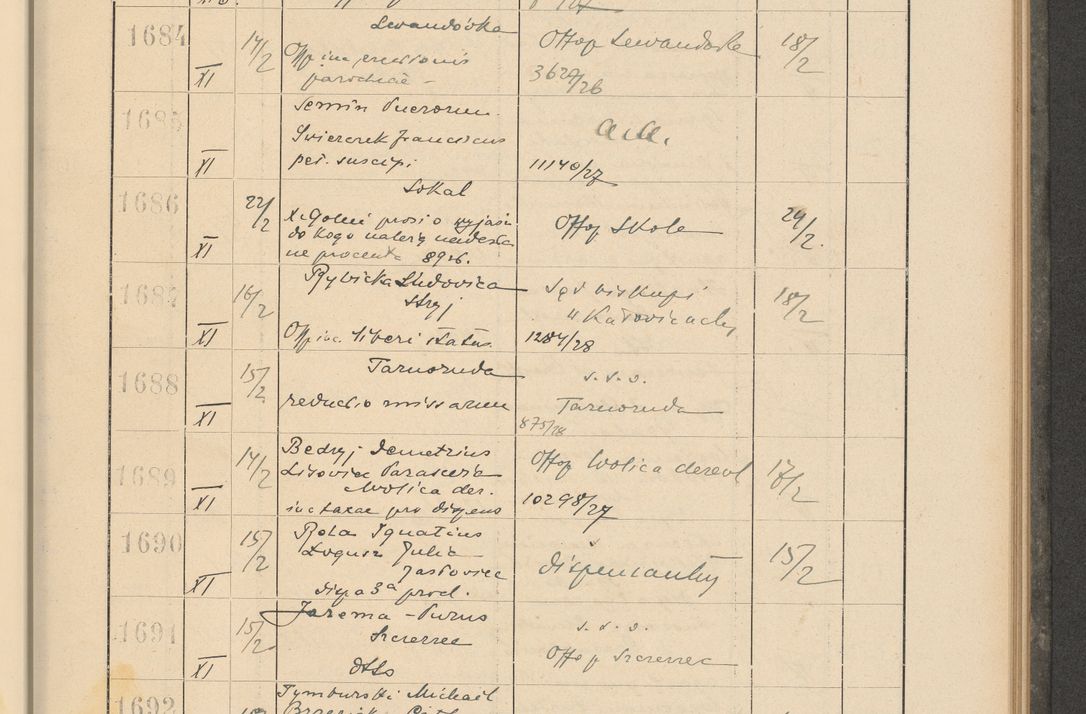 1684 XI 17/2 Lewandówka
Offi inc erectionis
parochiae -
Offop Lewandówka
3627/26
18/2
1685 XI Semin Puerorum.
Swierczek Franciscus
pet. suscipi
a.a.
11140/27
1686 XI 22/2 Sokal
X. Golni prosi o wyjaśn
do kogo należą
procenta 8926.
Offop Skole
24/2.
1687 XI 16/2 Rybicka Ludovica
Stryj
Offi inc. liberi status.
Sąd biskupi
w Katowicach
1284/28
18/2
1688 XI 15/2 Tarnoruda
reductio missarum
s.s.o.
Tarnoruda
875/28
1689 XI 14/2 Bedryj Demetrius
Lisowiec Parascevia
Wolica der.
inc taxae pro dispens
Offop Wolica derewl
10298/27
17/2
1690 XI 15/2 Rola Ignatius
Łogusz Julia
Jastowiec
disp a 3a procl.
dispensantur
15/2
1691 XI 15/2 Jarema - Purus
Szczerzec
dtto
s.s.o.
Offop Szczerzec
1692 Tymburski Michael